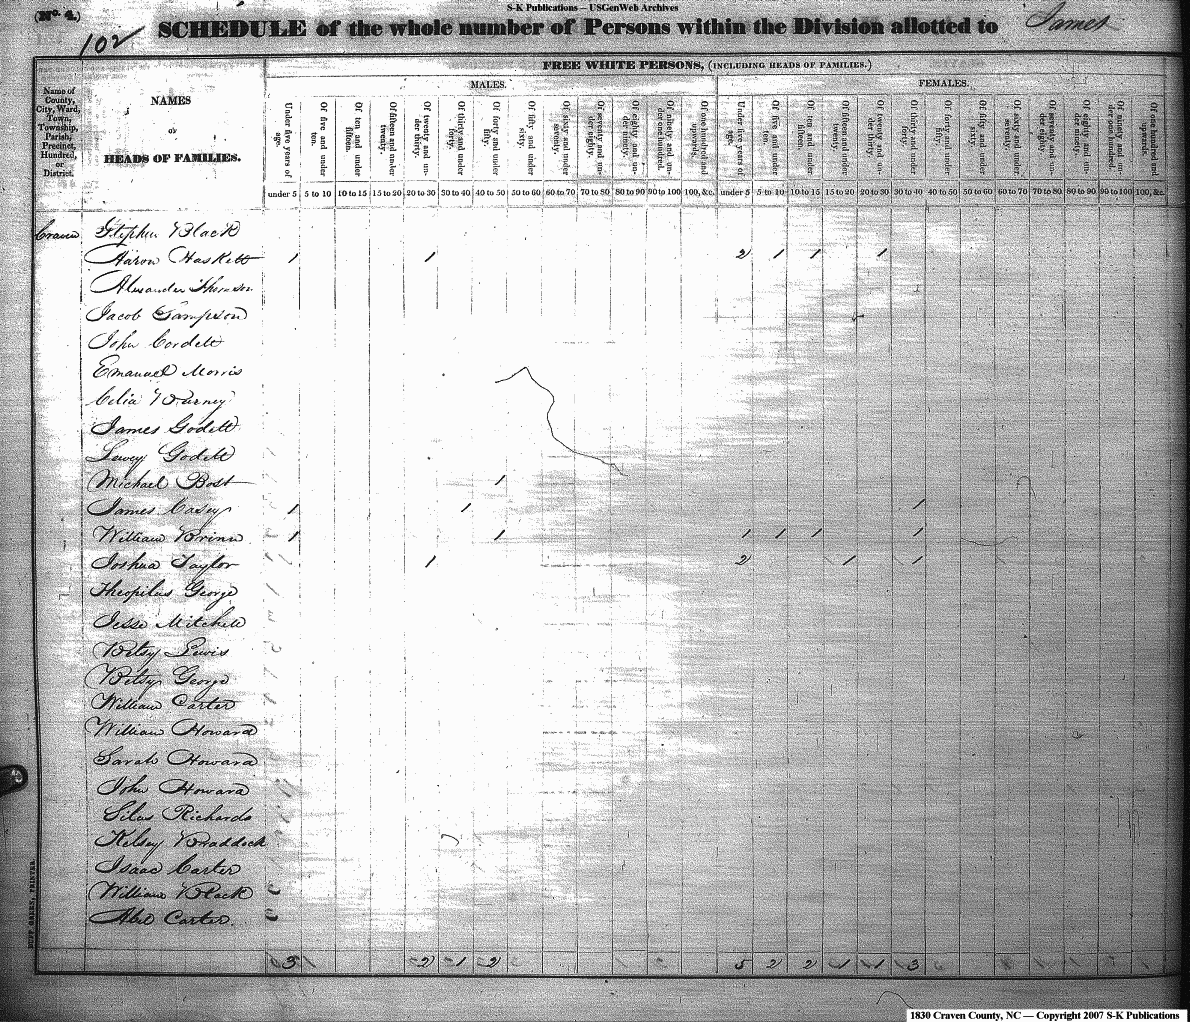 S-K Publications — USGenWeb Archives
(No. 4.)
SCHEDULE of the whole number of Persons within the Division allotted to James
102
FREE WHITE PERSONS, (INCLUDING HEADS OF FAMILIES.)
MALES. FEMALES.
Name of County, City, Ward, Town, Township, Parish, Precinct, Hundred, or District.
NAMES
OF
HEADS OF FAMILIES.
Under five years of age. Of five and under ten. Of ten and under fifteen. Of fifteen and under twenty. Of twenty and under thirty. Of thirty and under forty. Of forty and under fifty. Of fifty and under sixty. Of sixty and under seventy. Of seventy and under eighty. Of eighty and under ninety. Of ninety and under one hundred. Of one hundred and upwards. Under five years of age. Of five and under ten. Of ten and under fifteen. Of fifteen and under twenty. Of twenty and under thirty. Of thirty and under forty. Of forty and under fifty. Of fifty and under sixty. Of sixty and under seventy. Of seventy and under eighty. Of eighty and under ninety. Of ninety and under one hundred. Of one hundred and upwards.
under 5 5 to 10 10 to 15 15 to 20 20 to 30 30 to 40 40 to 50 50 to 60 60 to 70 70 to 80 80 to 90 90 to 100 100, &c. under 5 5 to 10 10 to 15 15 to 20 20 to 30 30 to 40 40 to 50 50 to 60 60 to 70 70 to 80 80 to 90 90 to 100 100, &c.
Craven Stephen Black
Aaron Haskett 1 1 2 1 1 1
Alexander Thomson
Jacob Sampson
John Cordell
Emanuel Morris
Celia Burney
James Godett
Lewey Godett
Michael Bost 1
James Casey 1 1 1
William Brinn 1 1 1 1 1 1
Joshua Taylor 1 2 1 1
Theopilus George
Jesse Mitchell
Betsy Lewis
Betsy George
William Carter
William Howard
Sarah Howard
John Howard
Silas Richards
Kelsey Braddock
Isaac Carter
William Black
Abel Carter.
3 2 1 2 5 2 2 1 1 3
DUFF GREEN, PRINTER.
1830 Craven County, NC — Copyright 2007 S-K Publications